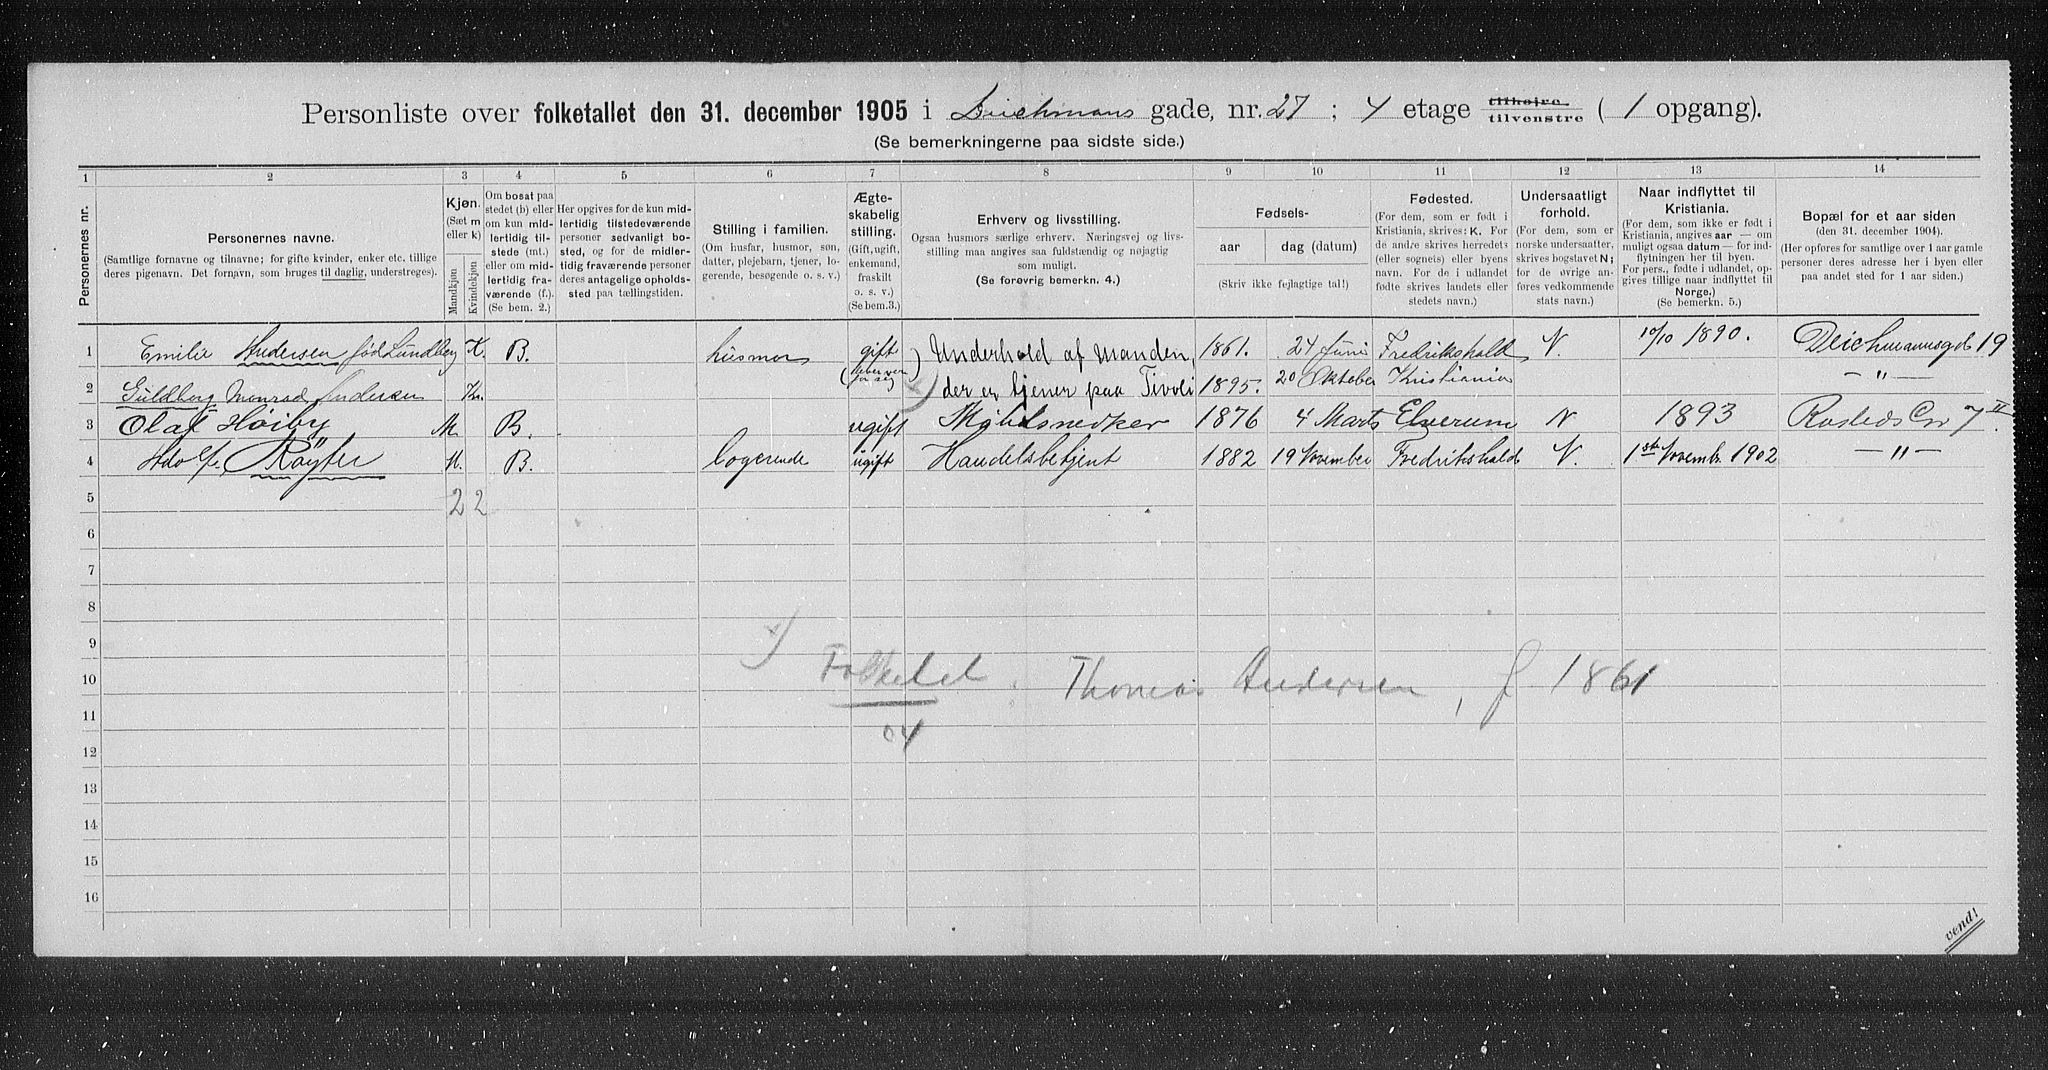 Personliste over folketallet den 31. december 1905 i Deichmans gade, nr. 27 ; 4 etage tilhøjre tilvenstre ( 1 opgang).
(Se bemerkningerne paa sidste side.)
1 2 3 4 5 6 7 8 9 10 11 12 13 14
Personernes nr.
Personernes navne.
(Samtlige fornavne og tilnavne; for gifte kvinder, enker etc. tillige
deres pigenavn. Det fornavn, som bruges til daglig, understreges).
Kjøn.
(Sæt m
eller k)
Mandkjøn
Kvindekjøn
Om bosat paa
stedet (b) eller
om kun mid-
lertidig til-
stede (mt.)
eller om mid-
lertidig fra-
værende (f.).
(Se bem. 2.)
Her opgives for de kun mid-
lertidig tilstedeværende
personer sedvanligt bo-
sted, og for de midler-
tidig fraværende personer
deres antagelige opholds-
sted paa tællingstiden.
Stilling i familien.
(Om husfar, husmor, søn,
datter, plejebarn, tjener, lo-
gerende, besøgende o. s. v.)
Ægte-
skabelig
stilling.
(Gift, ugift,
enkemand,
fraskilt
o. s. v.)
(Se bem.3.)
Erhverv og livsstilling.
Ogsaa husmors særlige erhverv. Næringsvej og livs-
stilling maa angives saa fuldstændig og nøjagtig
som muligt.
(Se forøvrig bemerkn. 4.)
Fødsels-
aar dag (datum)
(Skriv ikke fejlagtige tal!)
Fødested.
(For dem, som er født i
Kristiania, skrives: K. For
de andre skrives herredets
(eller sognets) eller byens
navn. For de i udlandet
fødte skrives landets eller
stedets navn.)
Undersaatligt
forhold.
(For dem, som er
norske undersaatter,
skrives bogstavet N;
for de øvrige an-
føres vedkommende
stats navn.)
Naar indflyttet til
Kristiania.
(For dem, som ikke er født i
Kristiania, angives aar — om
muligt ogsaa datum — for ind-
flytningen her til byen.
For pers., fødte i udlandet, op-
gives tillige naar indflyttet til
Norge.)
(Se bemerkn. 5.)
Bopæl for et aar siden
(den 31. december 1904).
(Her opføres for samtlige over 1 aar gamle
personer deres adresse her i byen eller
paa andet sted for 1 aar siden.)
1 Emilie Andersen fød Lundberg K. B. husmor gift Underhold af manden, 1861. 24 Juni Fredrikshald N. 10/10 1890. Deichmannsgd 19
(lever ver for sig)
2 Guldborg Monrad Andersen Kv. x) der er tjener paa Tivoli 1895. 20 Oktober Kristiania — " —
3 Olaf Høiby M. B. ugift Møbelsnedker 1876 4 Marts Elverum N 1893 Rosteds Gr 7 II
4 Adolf Röyter M. B. logerende ugift Handelsbetjent 1882 19 November Fredrikshald N. 1ste Novembr. 1902 — " —
5 2 2
6
7
8
9
10 x) Folketal 04 . Thomas Andersen, f 1861
11
12
13
14
15
16
vend!